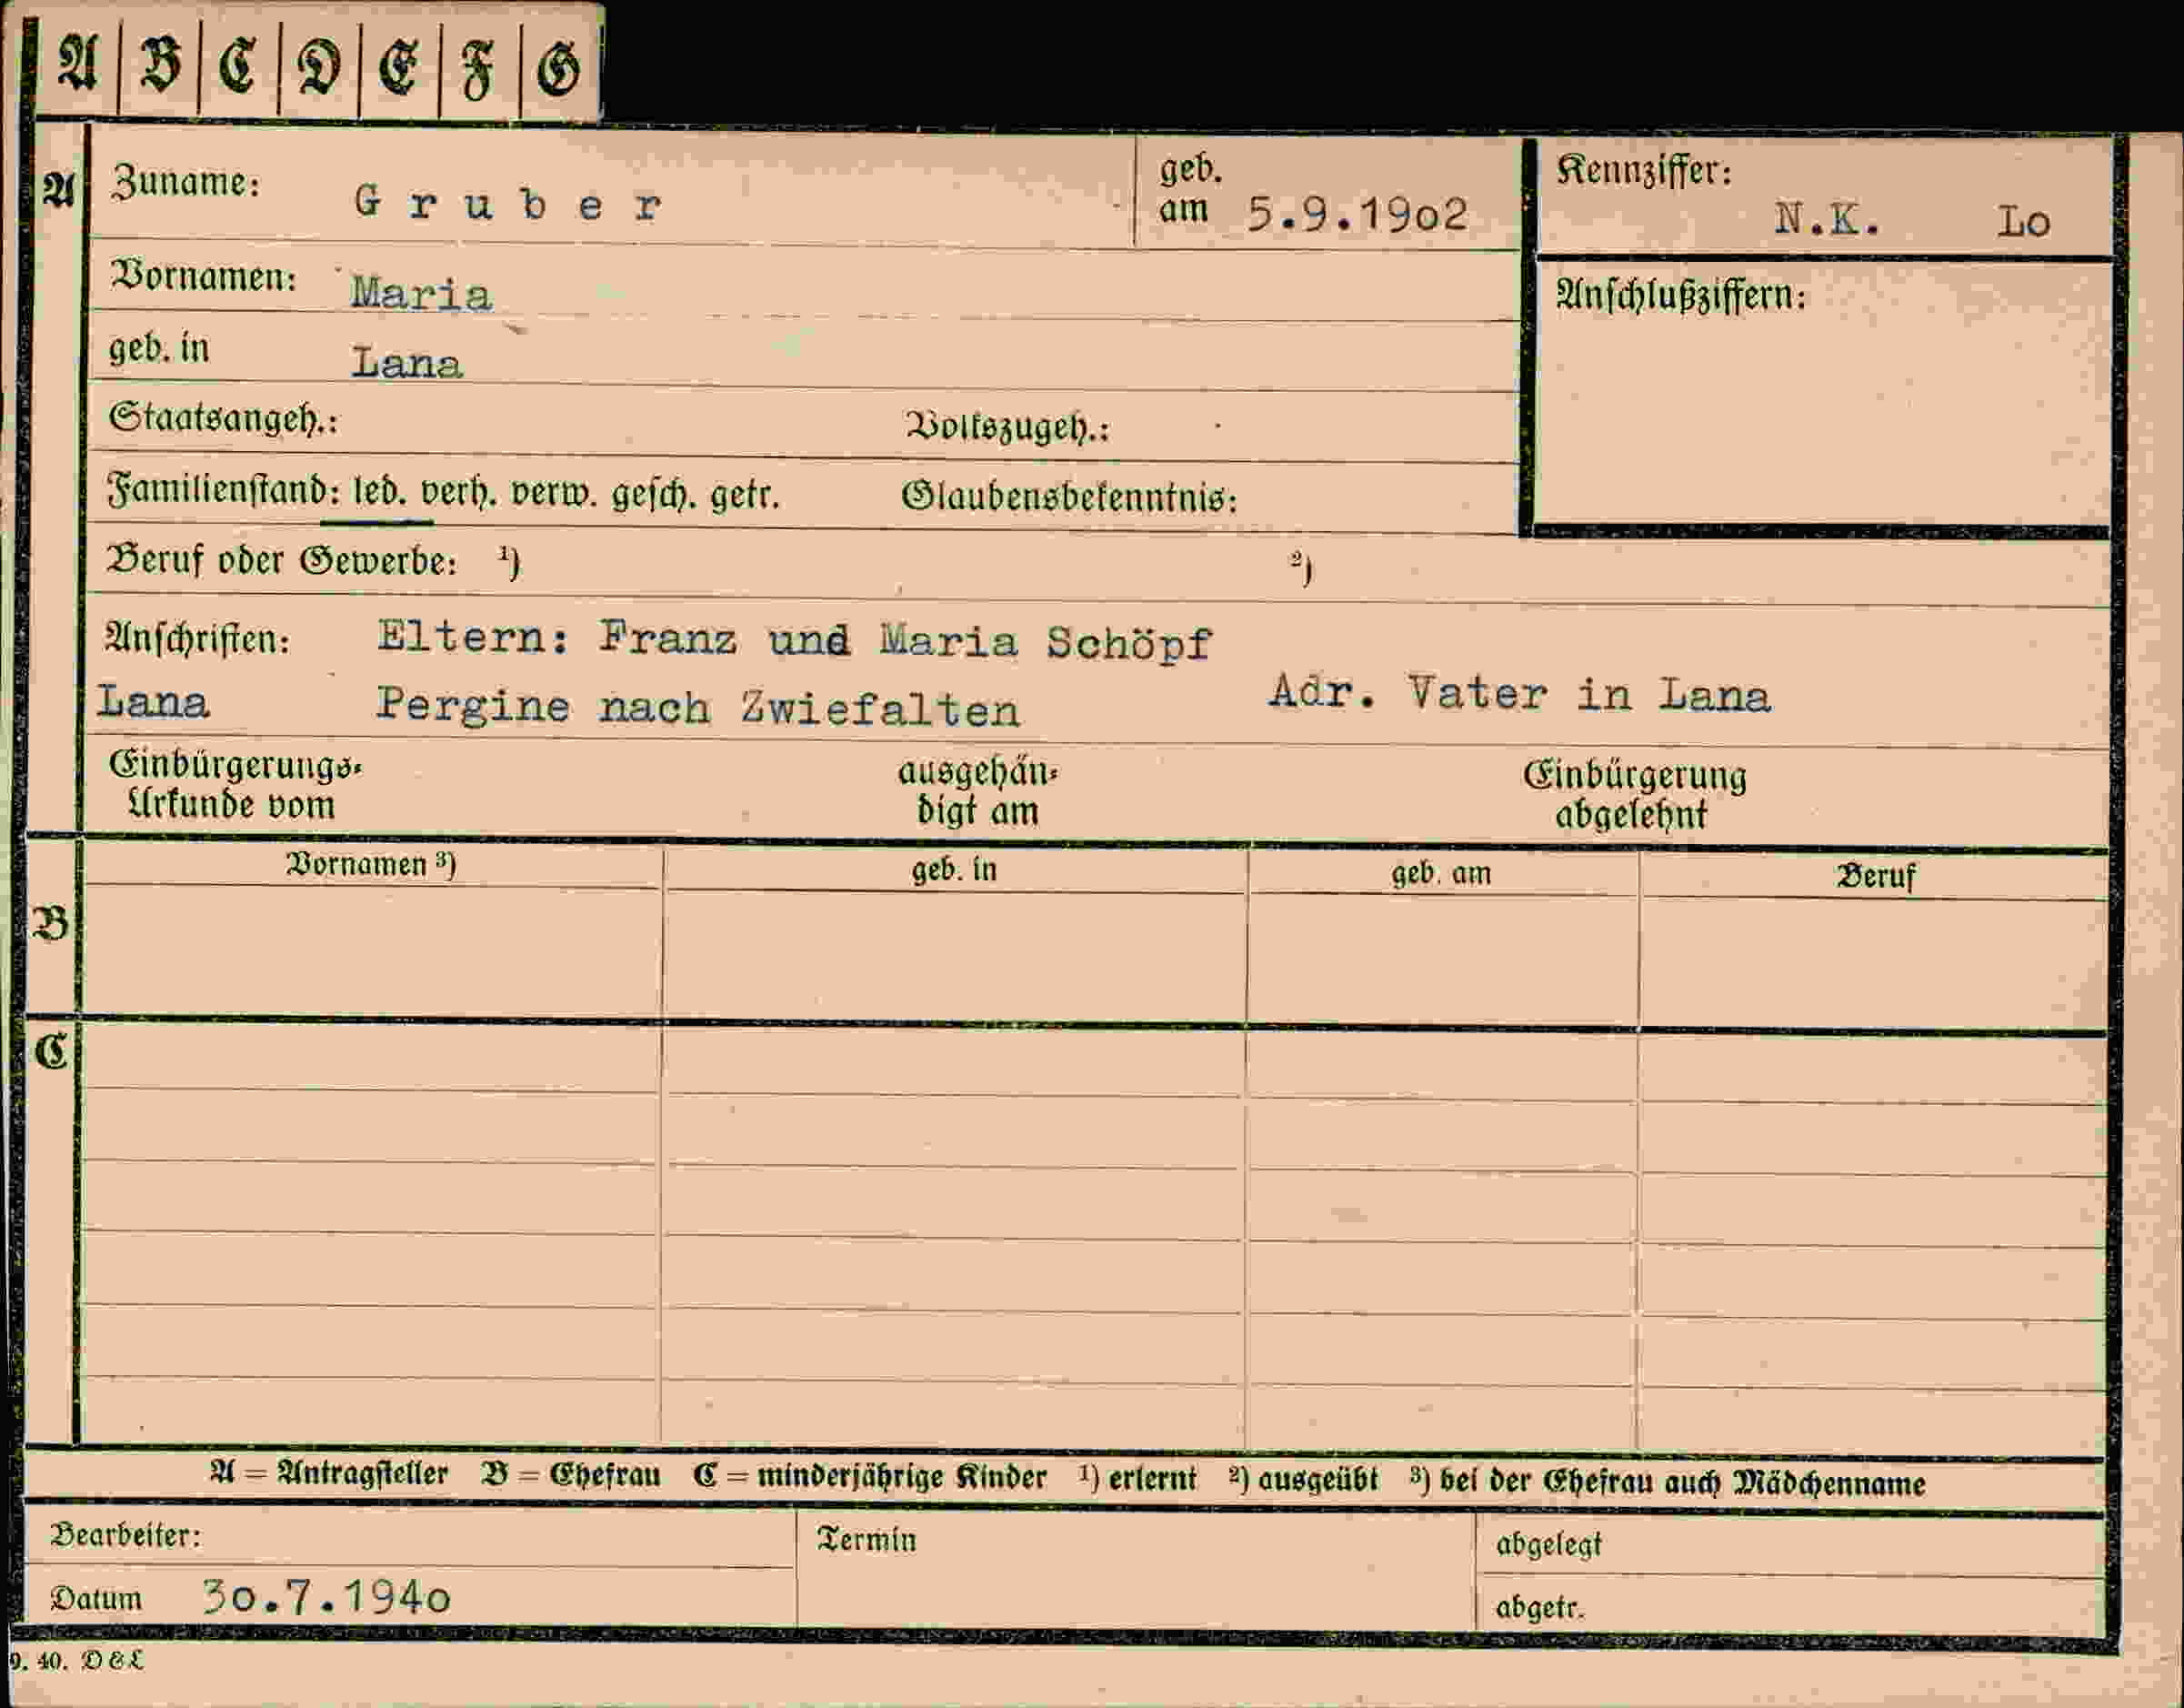 A B C D E F G
A Zuname: Gruber geb. am 5.9.19o2 Kennziffer: N.K. Lo
Vornamen: Maria Anschlußziffern:
geb. in Lana
Staatsangeh.: Volkszugeh.:
Familienstand: led. verh. verw. gesch. getr. Glaubensbekenntnis:
Beruf oder Gewerbe: ¹) ²)
Anschriften: Eltern: Franz und Maria Schöpf
Lana Pergine nach Zwiefalten Adr. Vater in Lana
Einbürgerungs- ausgehän- Einbürgerung
Urkunde vom digt am abgelehnt
Vornamen ³) geb. in geb. am Beruf
B
C
A = Antragsteller B = Ehefrau C = minderjährige Kinder ¹) erlernt ²) ausgeübt ³) bei der Ehefrau auch Mädchenname
Bearbeiter: Termin abgelegt
Datum 3o.7.194o abgetr.
9. 40. D & L